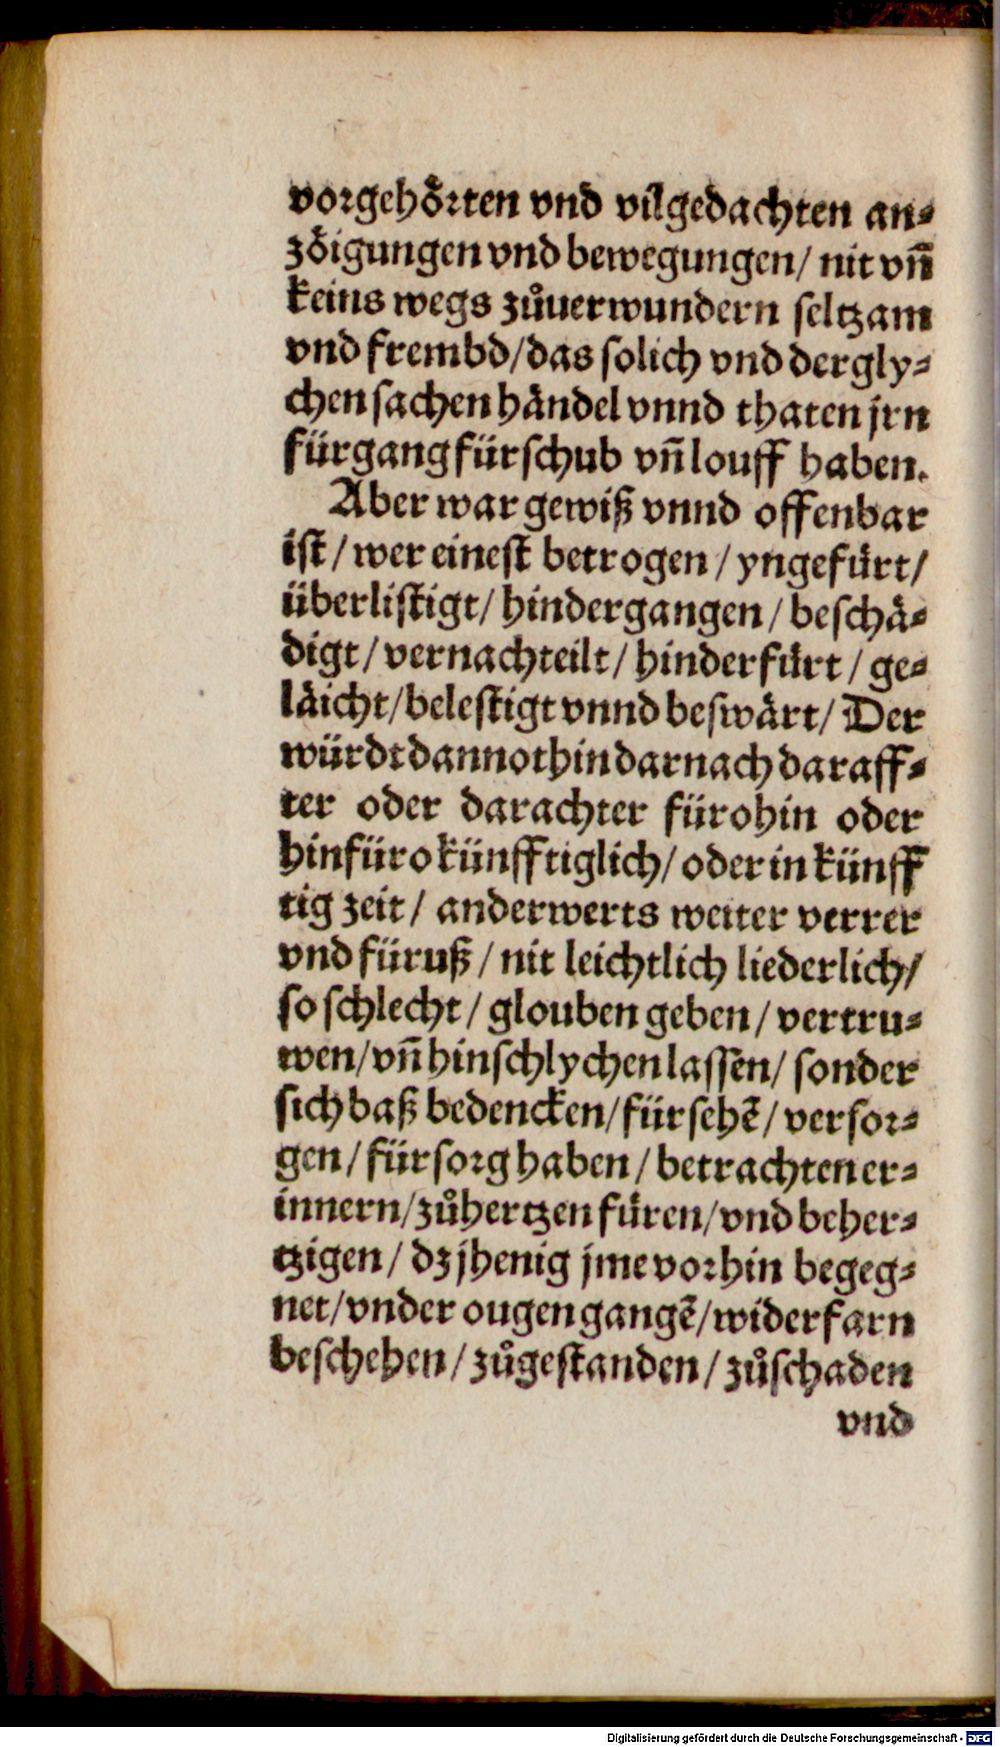 vorgehoͤrten vnd vilgedachten an⸗
zoͤigungen vnd bewegungen/ nit vñ
keins wegs zuͦuerwundern seltzam
vnd frembd/ das solich vnd dergly⸗
chen sachen haͤndel vnnd thaten jrn
fürgang fürschub vñ louff haben.
Aber war gewiß vnnd offenbar
ist/ wer einest betrogen/ yngefürt/
überlistigt/ hindergangen/ beschaͤ⸗
digt/ vernachteilt/ hinderfürt/ ge⸗
laͤicht/ belestigt vnnd beswaͤrt/ Der
würdt dannothin darnach daraff⸗
ter oder darachter fürohin oder
hinfüro künfftiglich/ oder in künff
tig zeit/ anderwerts weiter verrer
vnd füruß/ nit leichtlich liederlich/
so schlecht/ glouben geben/ vertru⸗
wen/ vñ hinschlychen lassen/ sonder
sich baß bedencken/ fürsehẽ/ versor⸗
gen/ fürsorg haben/ betrachten er⸗
innern/ zuͦhertzen füren/ vnd beher⸗
tzigen/ dz jhenig jme vorhin begeg⸗
net/ vnder ougen gangẽ/ widerfarn
beschehen/ zuͦgestanden/ zuͦschaden
vnd
Digitalisierung gefördert durch die Deutsche Forschungsgemeinschaft - DFG